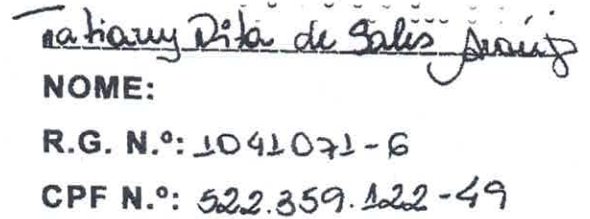 Tatiany Rita de Sales Araújo
NOME:
R.G. N.º: 1041071-6
CPF N.º: 522.359.122-49